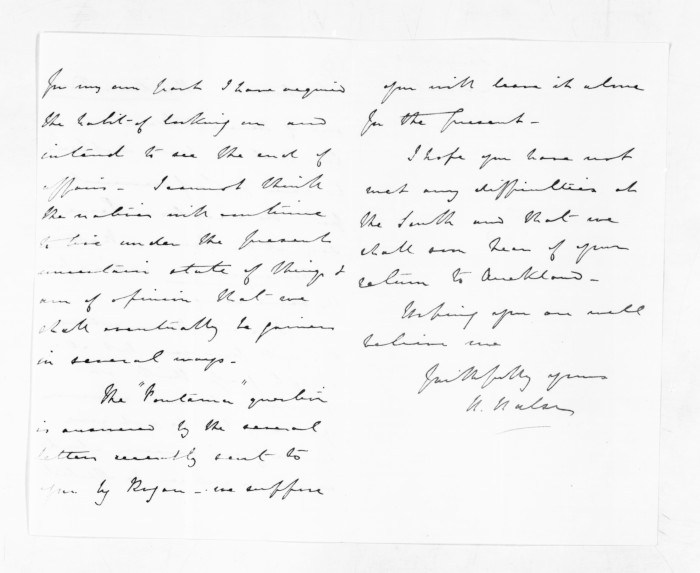 For my own part I have acquired
the habit of looking on and
intend to see the end of
affairs - I cannot think
the natives will continue
to live under the present
uncertain state of things &
am of opinion that we
shall eventually be gainers
in several ways -
The "Pontama" question
is answered by the several
letters recently sent to
you by Rogan - we suppose
you will leave it alone
for the present -
I hope you have not
met any difficulties at
the South and that we
shall soon hear of your
return to Auckland -
Hoping you are well
believe me
faithfully yours
H. Halse